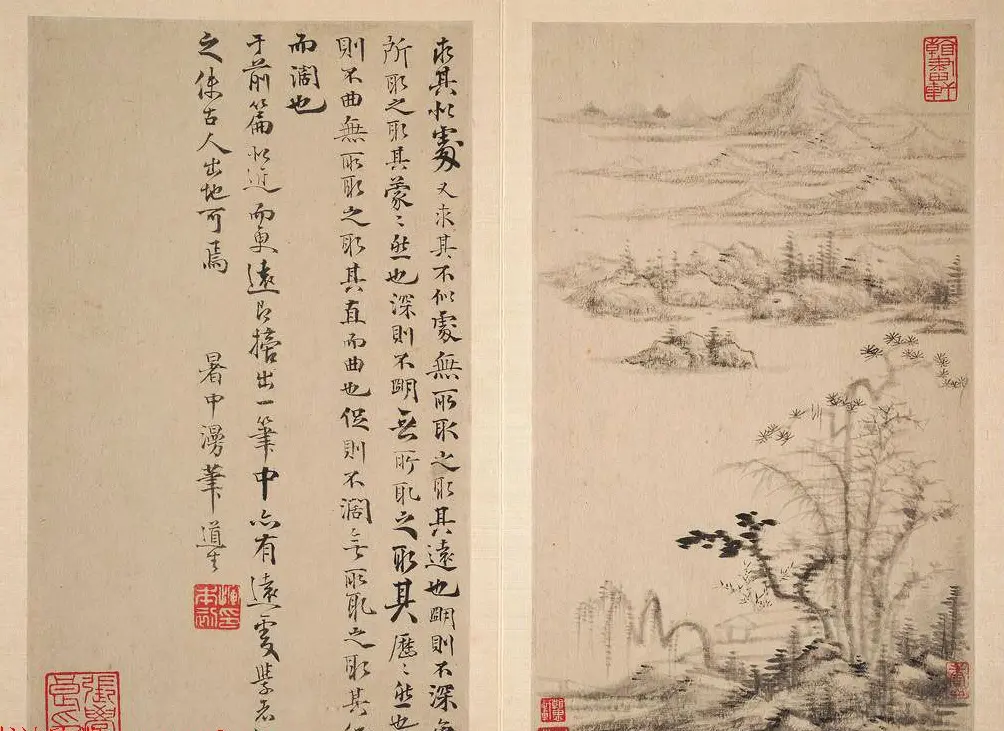 求其似處又求其不似處無所取之取其遠也明則不深
所取之取其蒙〻然也深則不明無所取之取其歷〻然也
則不曲無所取之取其直而曲也促則不濶無所取之取其
而濶也
于前篇似近而更遠只擔出一筆中亦有遠處學者
之俟古人出地可焉
暑中漫筆 道生
惲本初印